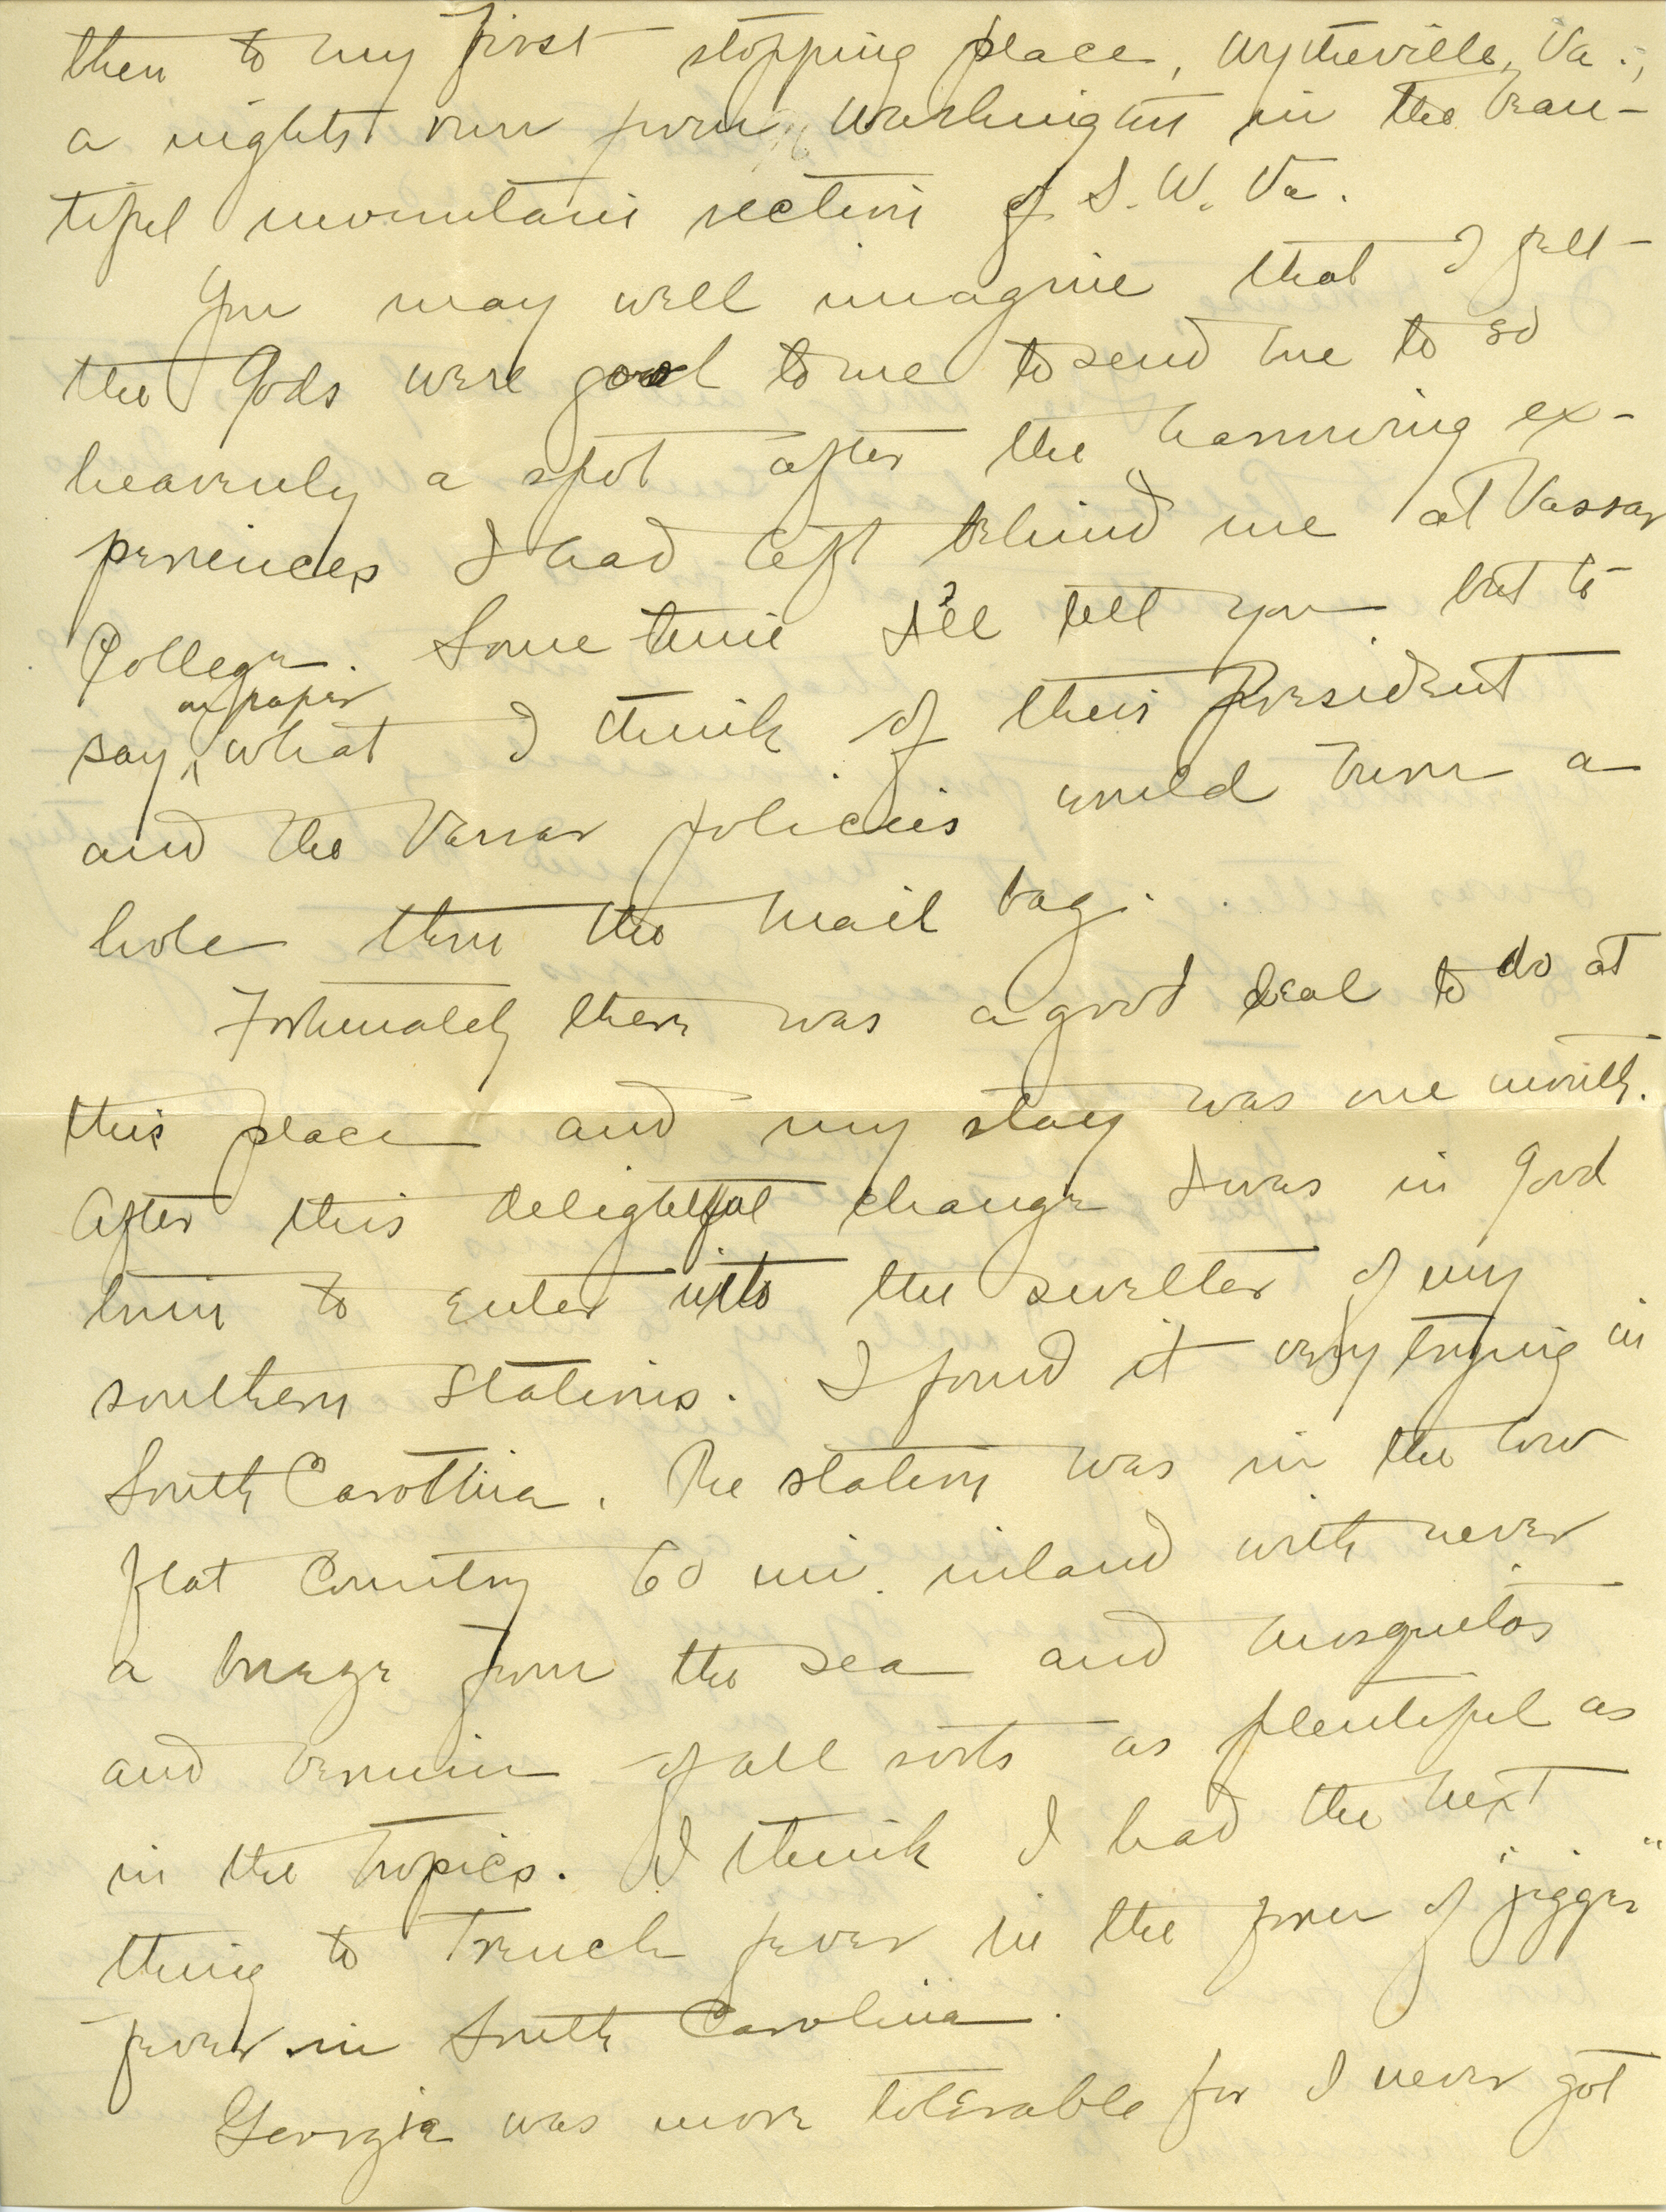 then to my first stopping place, Wytheville, Va.;
a nights run from Washington in the beau-
tiful mountain section of S. W. Va.
You may well imagine that I felt
the Gods were good to me to send me to so
heavenly a spot after the harrowing ex-
periences I had left behind me at Vassar
College. Some time I'll tell you but to
on paper
say ^ what I think of their President
and the Vassar policies would burn a
hole thru the mail bag.
Fortunately there was a good deal to do at
this place and my stay was one month.
After this delightful change I was in good
trim to enter into the swelter of my
southern stations. I found it very trying in
South Carolina. The station was in the low
flat country 60 mi. inland with never
a breeze from the sea and mosquitos
and vermin of all sorts as plentiful as
in the tropics. I think I had the next
thing to Trench fever in the form of "jigger"
fever in South Carolina.
Georgia was more tolerable for I never got